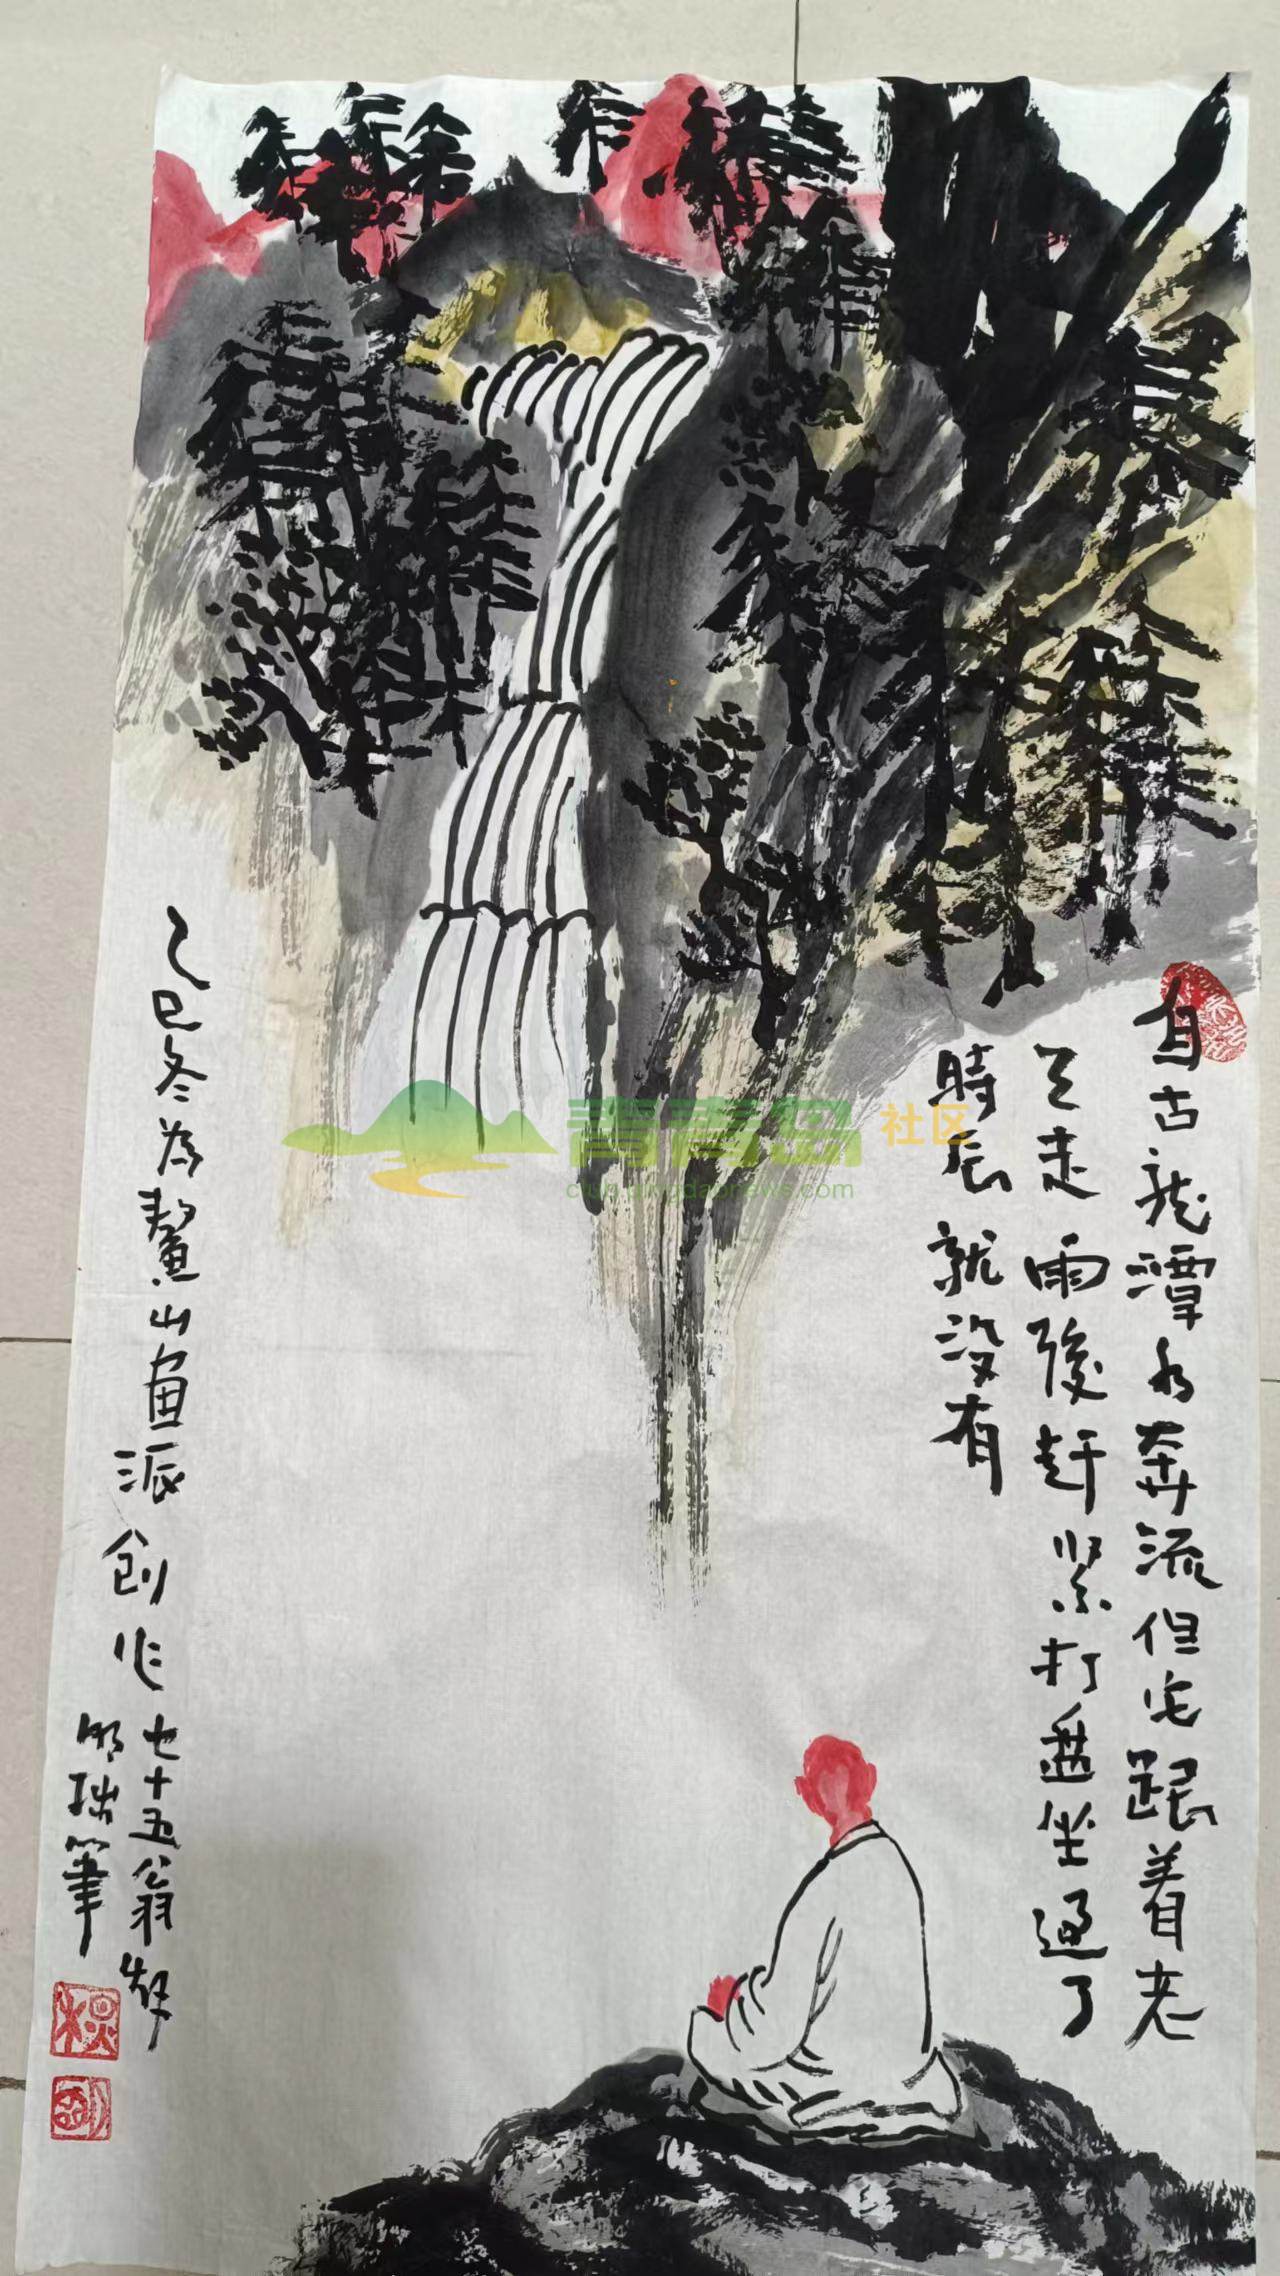 自古龙潭水奔流但它跟着老
天走雨後赶紧打盘坐过了
時辰就没有
乙巳冬为鳌山画派创作
七十五翁
明瑞筆
青青岛社区
club.qingdaonews.com